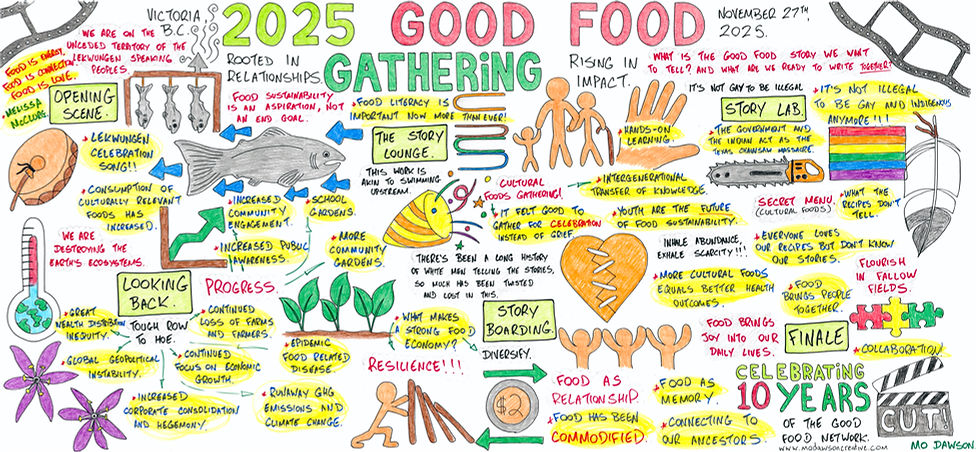 VICTORIA,
B.C.
2025 GOOD FOOD
GATHERING
NOVEMBER 27TH,
2025.
WE ARE ON THE
UNCEDED TERRITORY OF THE
LEKWUNGEN SPEAKING
PEOPLES.
FOOD IS ENERGY.
FOOD IS CONNECTION.
FOOD IS LOVE.
- MELISSA
McCLURG.
OPENING
SCENE.
ROOTED IN
RELATIONSHIPS.
RISING IN
IMPACT.
WHAT IS THE GOOD FOOD STORY WE WANT
TO TELL? AND WHAT ARE WE READY TO WRITE TOGETHER?
LEKWUNGEN
CELEBRATION
SONG!!
CONSUMPTION OF
CULTURALLY RELEVANT
FOODS HAS
INCREASED.
FOOD SUSTAINABILITY
IS AN ASPIRATION, NOT
AN END GOAL.
FOOD LITERACY IS
IMPORTANT NOW MORE THAN EVER!
THE STORY
LOUNGE.
THIS WORK IS
AKIN TO SWIMMING
UPSTREAM.
INCREASED
COMMUNITY
ENGAGEMENT.
SCHOOL
GARDENS.
INCREASED PUBLIC
AWARENESS.
MORE
COMMUNITY
GARDENS.
PROGRESS.
WE ARE
DESTROYING THE
EARTH'S ECOSYSTEMS.
LOOKING
BACK.
TOUGH ROW
TO HOE.
GREAT
WEALTH DISTRIBUTION
INEQUITY.
GLOBAL GEOPOLITICAL
INSTABILITY.
INCREASED
CORPORATE CONSOLIDATION
AND HEGEMONY.
CONTINUED
LOSS OF FARMS
AND FARMERS.
CONTINUED
FOCUS ON ECONOMIC
GROWTH.
RUNAWAY GHG
EMISSIONS AND
CLIMATE CHANGE.
EPIDEMIC
FOOD RELATED
DISEASE.
RESILIENCE!!!
CULTURAL
FOODS GATHERING!
IT FELT GOOD TO
GATHER FOR CELEBRATION
INSTEAD OF GRIEF.
THERE'S BEEN A LONG HISTORY
OF WHITE MEN TELLING THE STORIES,
SO MUCH HAS BEEN TWISTED
AND LOST IN THIS.
WHAT MAKES
A STRONG FOOD
ECONOMY?
STORY
BOARDING.
DIVERSIFY.
$2
HANDS-ON
LEARNING.
INTERGENERATIONAL
TRANSFER OF KNOWLEDGE.
YOUTH ARE THE FUTURE
OF FOOD SUSTAINABILITY.
INHALE ABUNDANCE,
EXHALE SCARCITY!!!
MORE CULTURAL FOODS
EQUALS BETTER HEALTH
OUTCOMES.
FOOD BRINGS
JOY INTO OUR
DAILY LIVES.
FOOD AS
RELATIONSHIP.
FOOD HAS BEEN
COMMODIFIED.
FOOD AS
MEMORY.
CONNECTING TO
OUR ANCESTORS.
IT'S NOT GAY TO BE ILLEGAL
STORY LAB.
IT'S NOT ILLEGAL
TO BE GAY AND INDIGENOUS
ANYMORE!!!
THE GOVERNMENT AND
THE INDIAN ACT AS THE
TEXAS CHAINSAW MASSACRE.
SECRET MENU.
(CULTURAL FOODS)
WHAT THE
RECIPES DON'T
TELL.
EVERYONE LOVES
OUR RECIPES BUT DON'T KNOW
OUR STORIES.
FOOD
BRINGS PEOPLE
TOGETHER.
FLOURISH
IN FALLOW
FIELDS.
FINALE
COLLABORATION
CELEBRATING
10 YEARS
OF THE GOOD
FOOD NETWORK.
CUT!
www.modawsoncreative.com
MO DAWSON